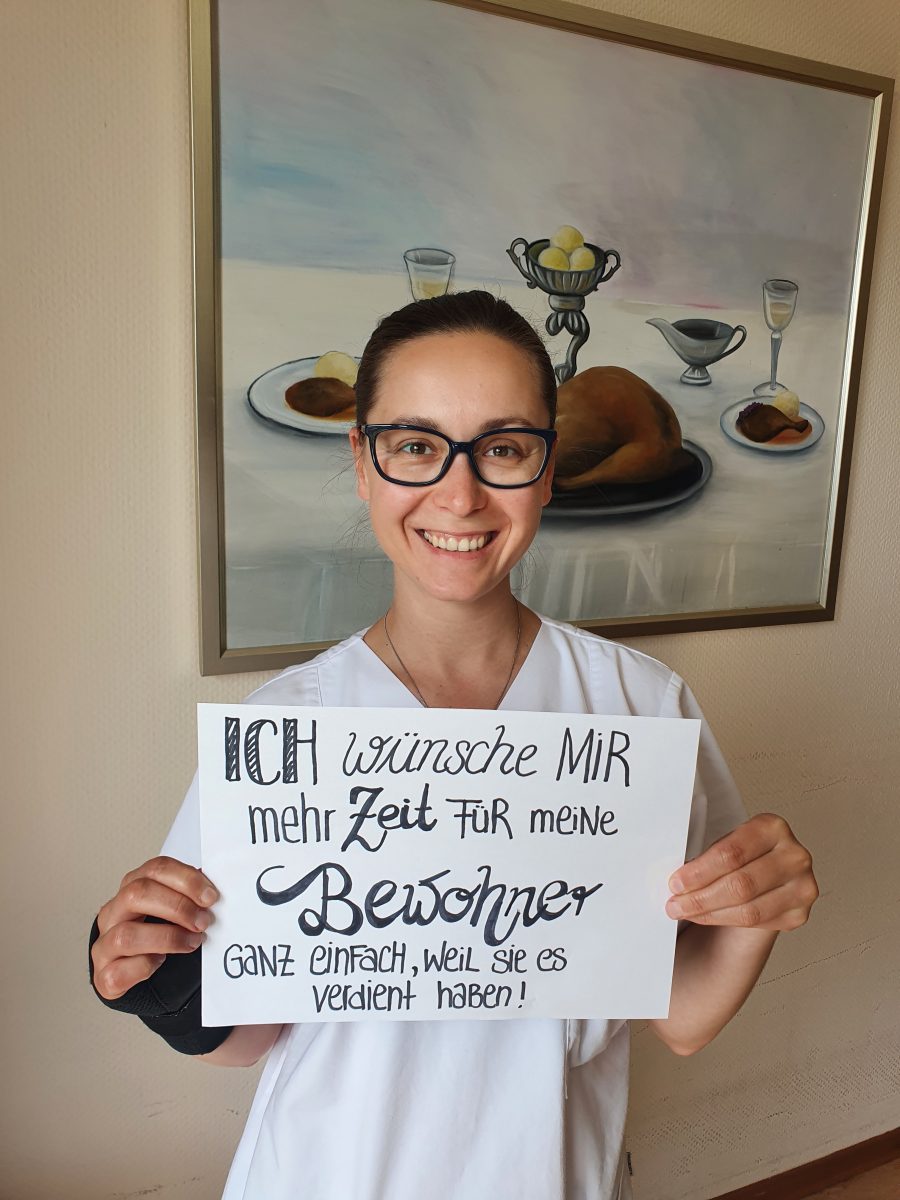 ICH wünsche MiR
mehr Zeit FÜR meiNe
Bewohner
GaNZ eiNFaCH, weiL sie es
verdient haben!